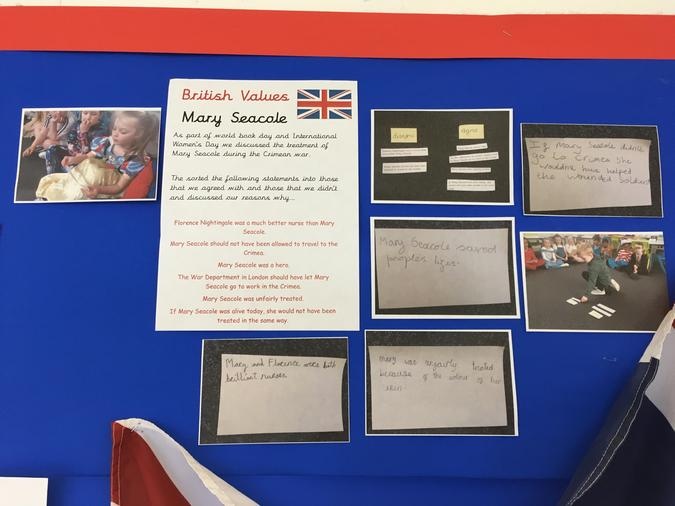 British Values
Mary Seacole
As part of world book day and International
Women's Day we discussed the treatment of
Mary Seacole during the Crimean war.
The sorted the following statements into those
that we agreed with and those that we didn't
and discussed our reasons why...
Florence Nightingale was a much better nurse than Mary
Seacole.
Mary Seacole should not have been allowed to travel to the
Crimea.
Mary Seacole was a hero.
The War Department in London should have let Mary
Seacole go to work in the Crimea.
Mary Seacole was unfairly treated.
If Mary Seacole was alive today, she would not have been
treated in the same way.
disagree
agree
If Mary Seacole didn't
go to Crimea she
wouldn't have helped
the wounded soldiers
Mary Seacole saved
people's lives.
Mary and Florence were both
brilliant nurses
Mary was unfairly treated
because of the colour of her
skin.